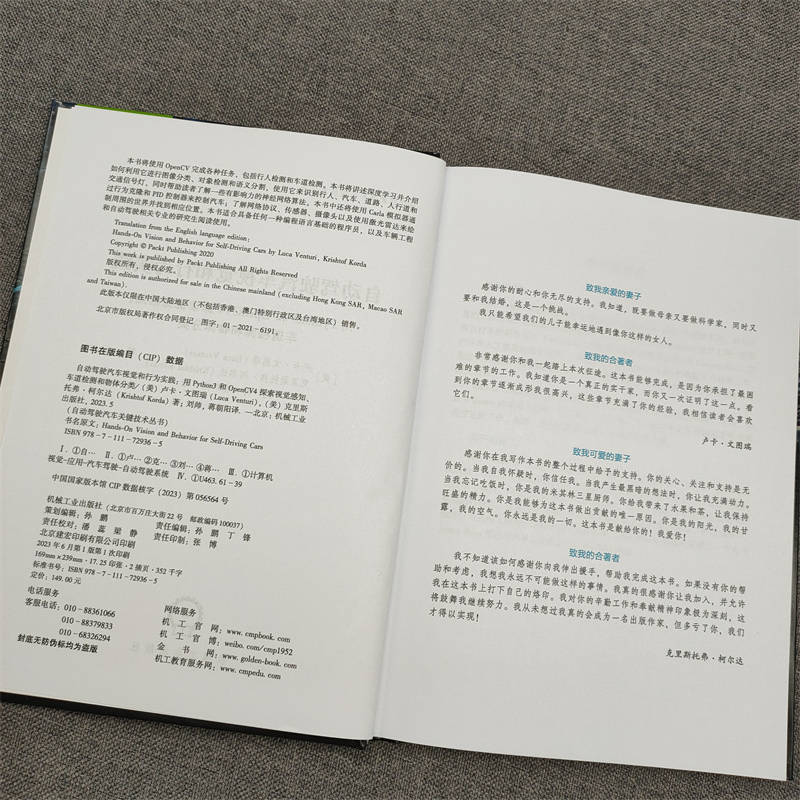 本书将使用 OpenCV 完成各种任务，包括行人检测和车道检测。本书将讲述深度学习并介绍
如何利用它进行图像分类、对象检测和语义分割，使用它来识别行人、汽车、道路、人行道和
交通信号灯，同时帮助读者了解一些有影响力的神经网络算法。本书中还将使用 Carla 模拟器通
过行为克隆和 PID 控制器来控制汽车；了解网络协议、传感器、摄像头以及使用激光雷达来绘
制周围的世界并找到相应位置。本书适合具备任何一种编程语言基础的程序员，以及车辆工程
和自动驾驶相关专业的研究生阅读使用。
Translation from the English language edition:
Hands-On Vision and Behavior for Self-Driving Cars by Luca Venturi, Krishtof Korda
Copyright © Packt Publishing 2020
This work is published by Packt Publishing All Rights Reserved
版权所有，侵权必究。
This edition is authorized for sale in the Chinese mainland (excluding Hong Kong SAR, Macao SAR
and Taiwan).
此版本仅限在中国大陆地区（不包括香港、澳门特别行政区及台湾地区）销售。
北京市版权局著作权合同登记 图字：01-2021-6191。
图书在版编目（CIP）数据
自动驾驶汽车视觉和行为实践：用 Python3 和 OpenCV4 探索视觉感知、
车道检测和物体分类/（美）卢卡·文图瑞（Luca Venturi），（美）克里斯
托弗·柯尔达（Krishtof Korda）著；刘帅，蒋朝阳译．—北京：机械工
业出版社，2023.5
（自动驾驶汽车关键技术丛书）
书名原文：Hands-On Vision and Behavior for Self-Driving Cars
ISBN 978-7-111-72936-5
Ⅰ．①自… Ⅱ．①卢…②克…③刘…④蒋… Ⅲ．①计算机
视觉-应用-汽车驾驶-自动驾驶系统 Ⅳ．①U463.61-39
中国国家版本馆 CIP 数据核字（2023）第 056564 号
机械工业出版社（北京市百万庄大街22号 邮政编码 100037）
策划编辑：孙 鹏 责任编辑：孙 鹏 丁 锋
责任校对：潘 蕊 梁 静 责任印制：张 博
北京建宏印刷有限公司印刷
2023 年 6 月第 1 版第 1 次印刷
169mm×239mm·17.25 印张·2 插页·352 千字
标准书号：ISBN 978-7-111-72936-5
定价：149.00 元
电话服务
客服电话：010-88361066
010-88379833
010-68326294
封底无防伪标均为盗版
网络服务
机 工 官 网：www.cmpbook.com
机 工 官 博：weibo.com/cmp1952
金 书 网：www.golden-book.com
机工教育服务网：www.cmpedu.com
致我亲爱的妻子
感谢你的耐心和你无尽的支持。我知道，既要做母亲又要做科学家，同时又
要和我结婚，这是一个挑战。
我只能希望我们的儿子能幸运地遇到像你这样的女人。
致我的合著者
非常感谢你和我一起踏上本次征途。这本书能够完成，是因为你承担了最困
难的章节的工作。我知道你是一个真正的实干家，而你又一次证明了这一点。看
到你的章节逐渐成形我很高兴，这些章节充满了你的经验，我相信读者会喜欢
它们。
卢卡·文图瑞
致我可爱的妻子
感谢你在我写作本书的整个过程中给予的支持。你的关心、关注和支持是无
价的。当我自我怀疑时，你信任我。当我产生最黑暗的想法时，你让我充满动力。
当我忘记吃饭时，你是我的米其林三星厨师。你给我带来了水果和茶，让我保持
旺盛的精力。你是我能够为这本书做出贡献的唯一原因。你是我的阳光，我的甘
露，我的空气。你永远是我的一切。这本书是献给你的！我爱你！
致我的合著者
我不知道该如何感谢你向我伸出援手，帮助我完成这本书。如果没有你的帮
助和考虑，我想我永远不可能做这样的事情。我真的很感谢你让我加入，并允许
我在这本书上打下自己的烙印。我对你的辛勤工作和奉献精神印象极为深刻，这
将鼓舞我继续努力。我从未想过我真的会成为一名出版作家，但多亏了你，我们
才得以实现！
克里斯托弗·柯尔达